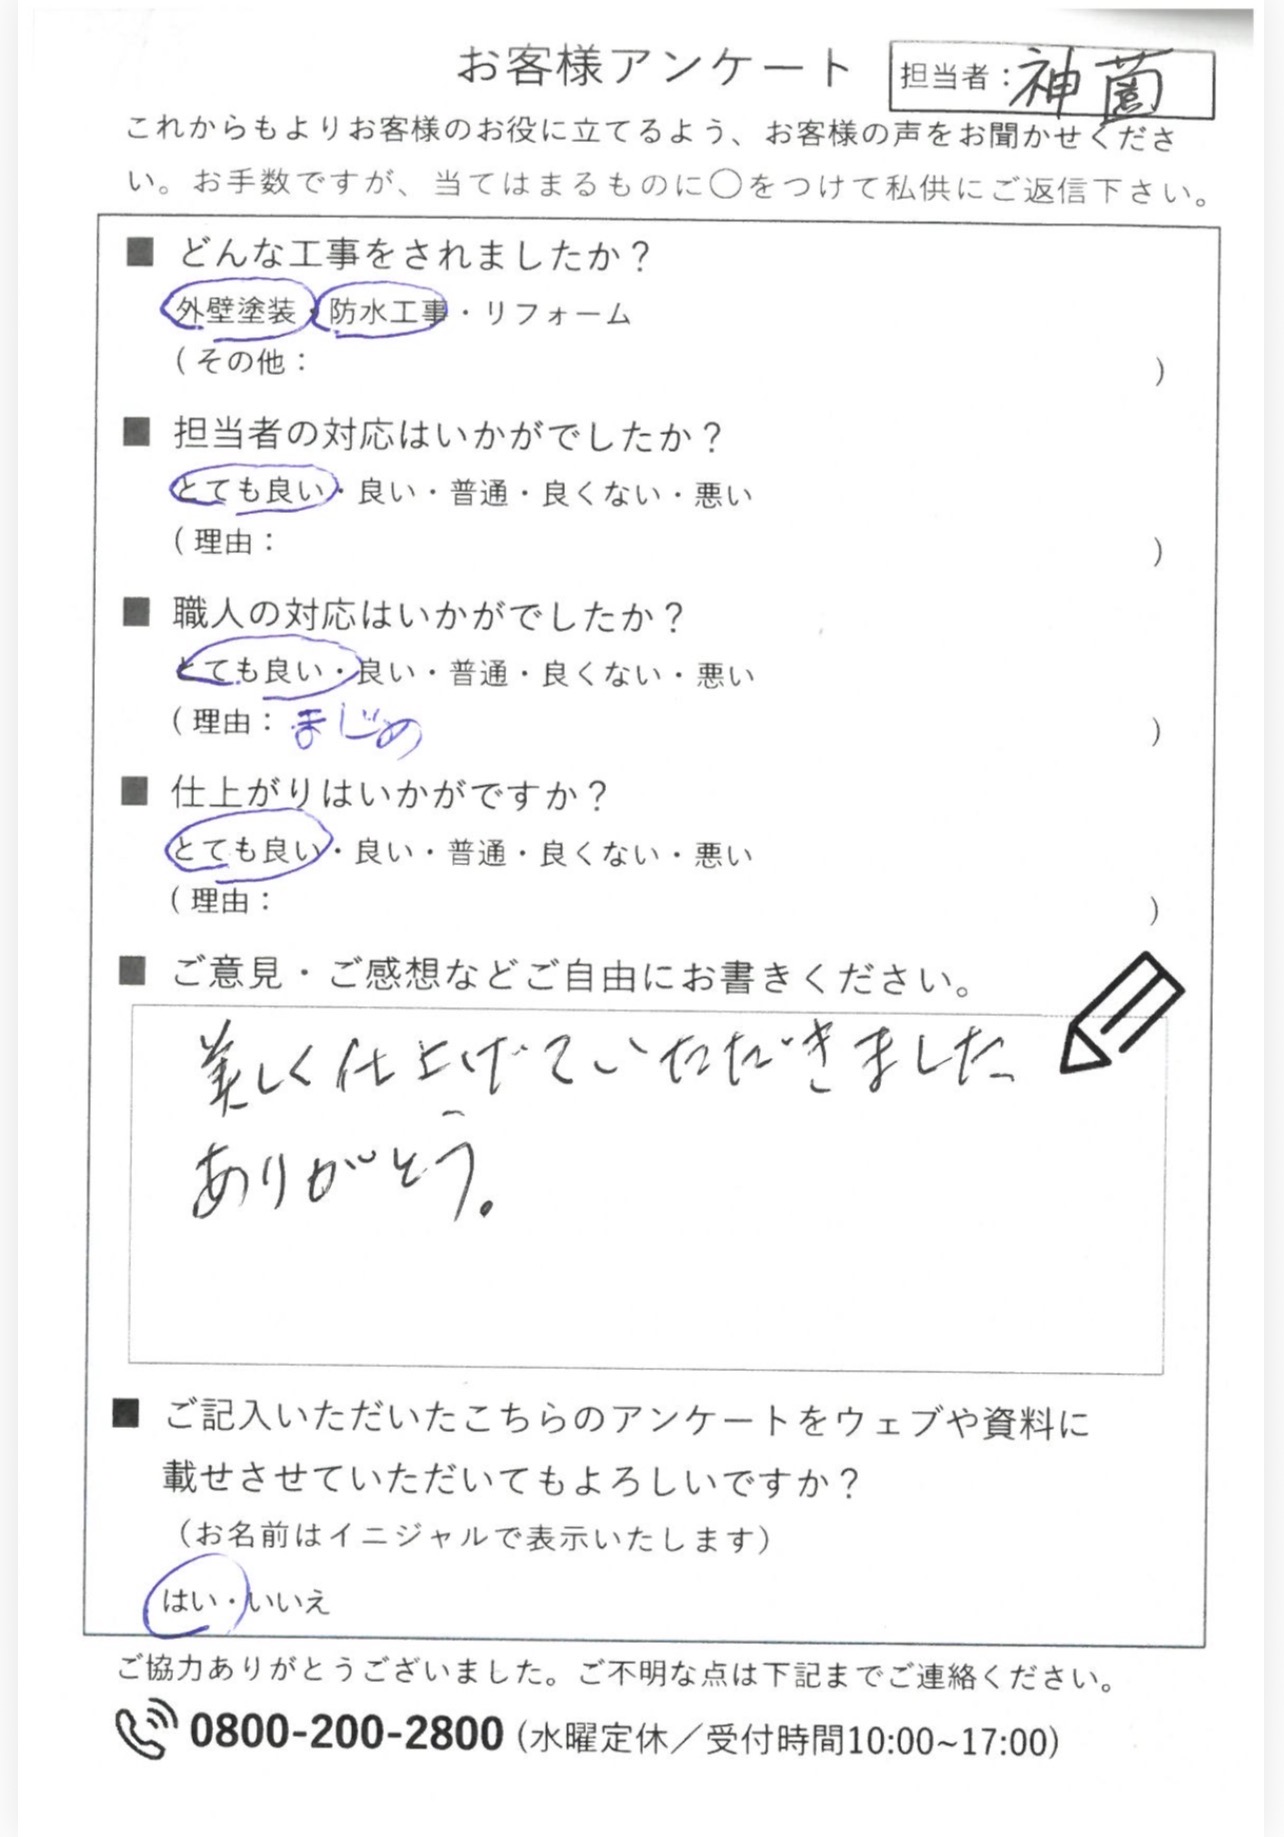 お客様アンケート
担当者：神薗
これからもよりお客様のお役に立てるよう、お客様の声をお聞かせくださ
い。お手数ですが、当てはまるものに〇をつけて私供にご返信下さい。
■ どんな工事をされましたか？
外壁塗装・防水工事・リフォーム
（その他：　　　）
■ 担当者の対応はいかがでしたか？
とても良い・良い・普通・良くない・悪い
（理由：　　　）
■ 職人の対応はいかがでしたか？
とても良い・良い・普通・良くない・悪い
（理由：まじめ　　　）
■ 仕上がりはいかがですか？
とても良い・良い・普通・良くない・悪い
（理由：　　　）
■ ご意見・ご感想などご自由にお書きください。
美しく仕上げていただきました
ありがとう。
■ ご記入いただいたこちらのアンケートをウェブや資料に
載せさせていただいてもよろしいですか？
（お名前はイニジャルで表示いたします）
はい・いいえ
ご協力ありがとうございました。ご不明な点は下記までご連絡ください。
0800-200-2800（水曜定休／受付時間10:00~17:00）